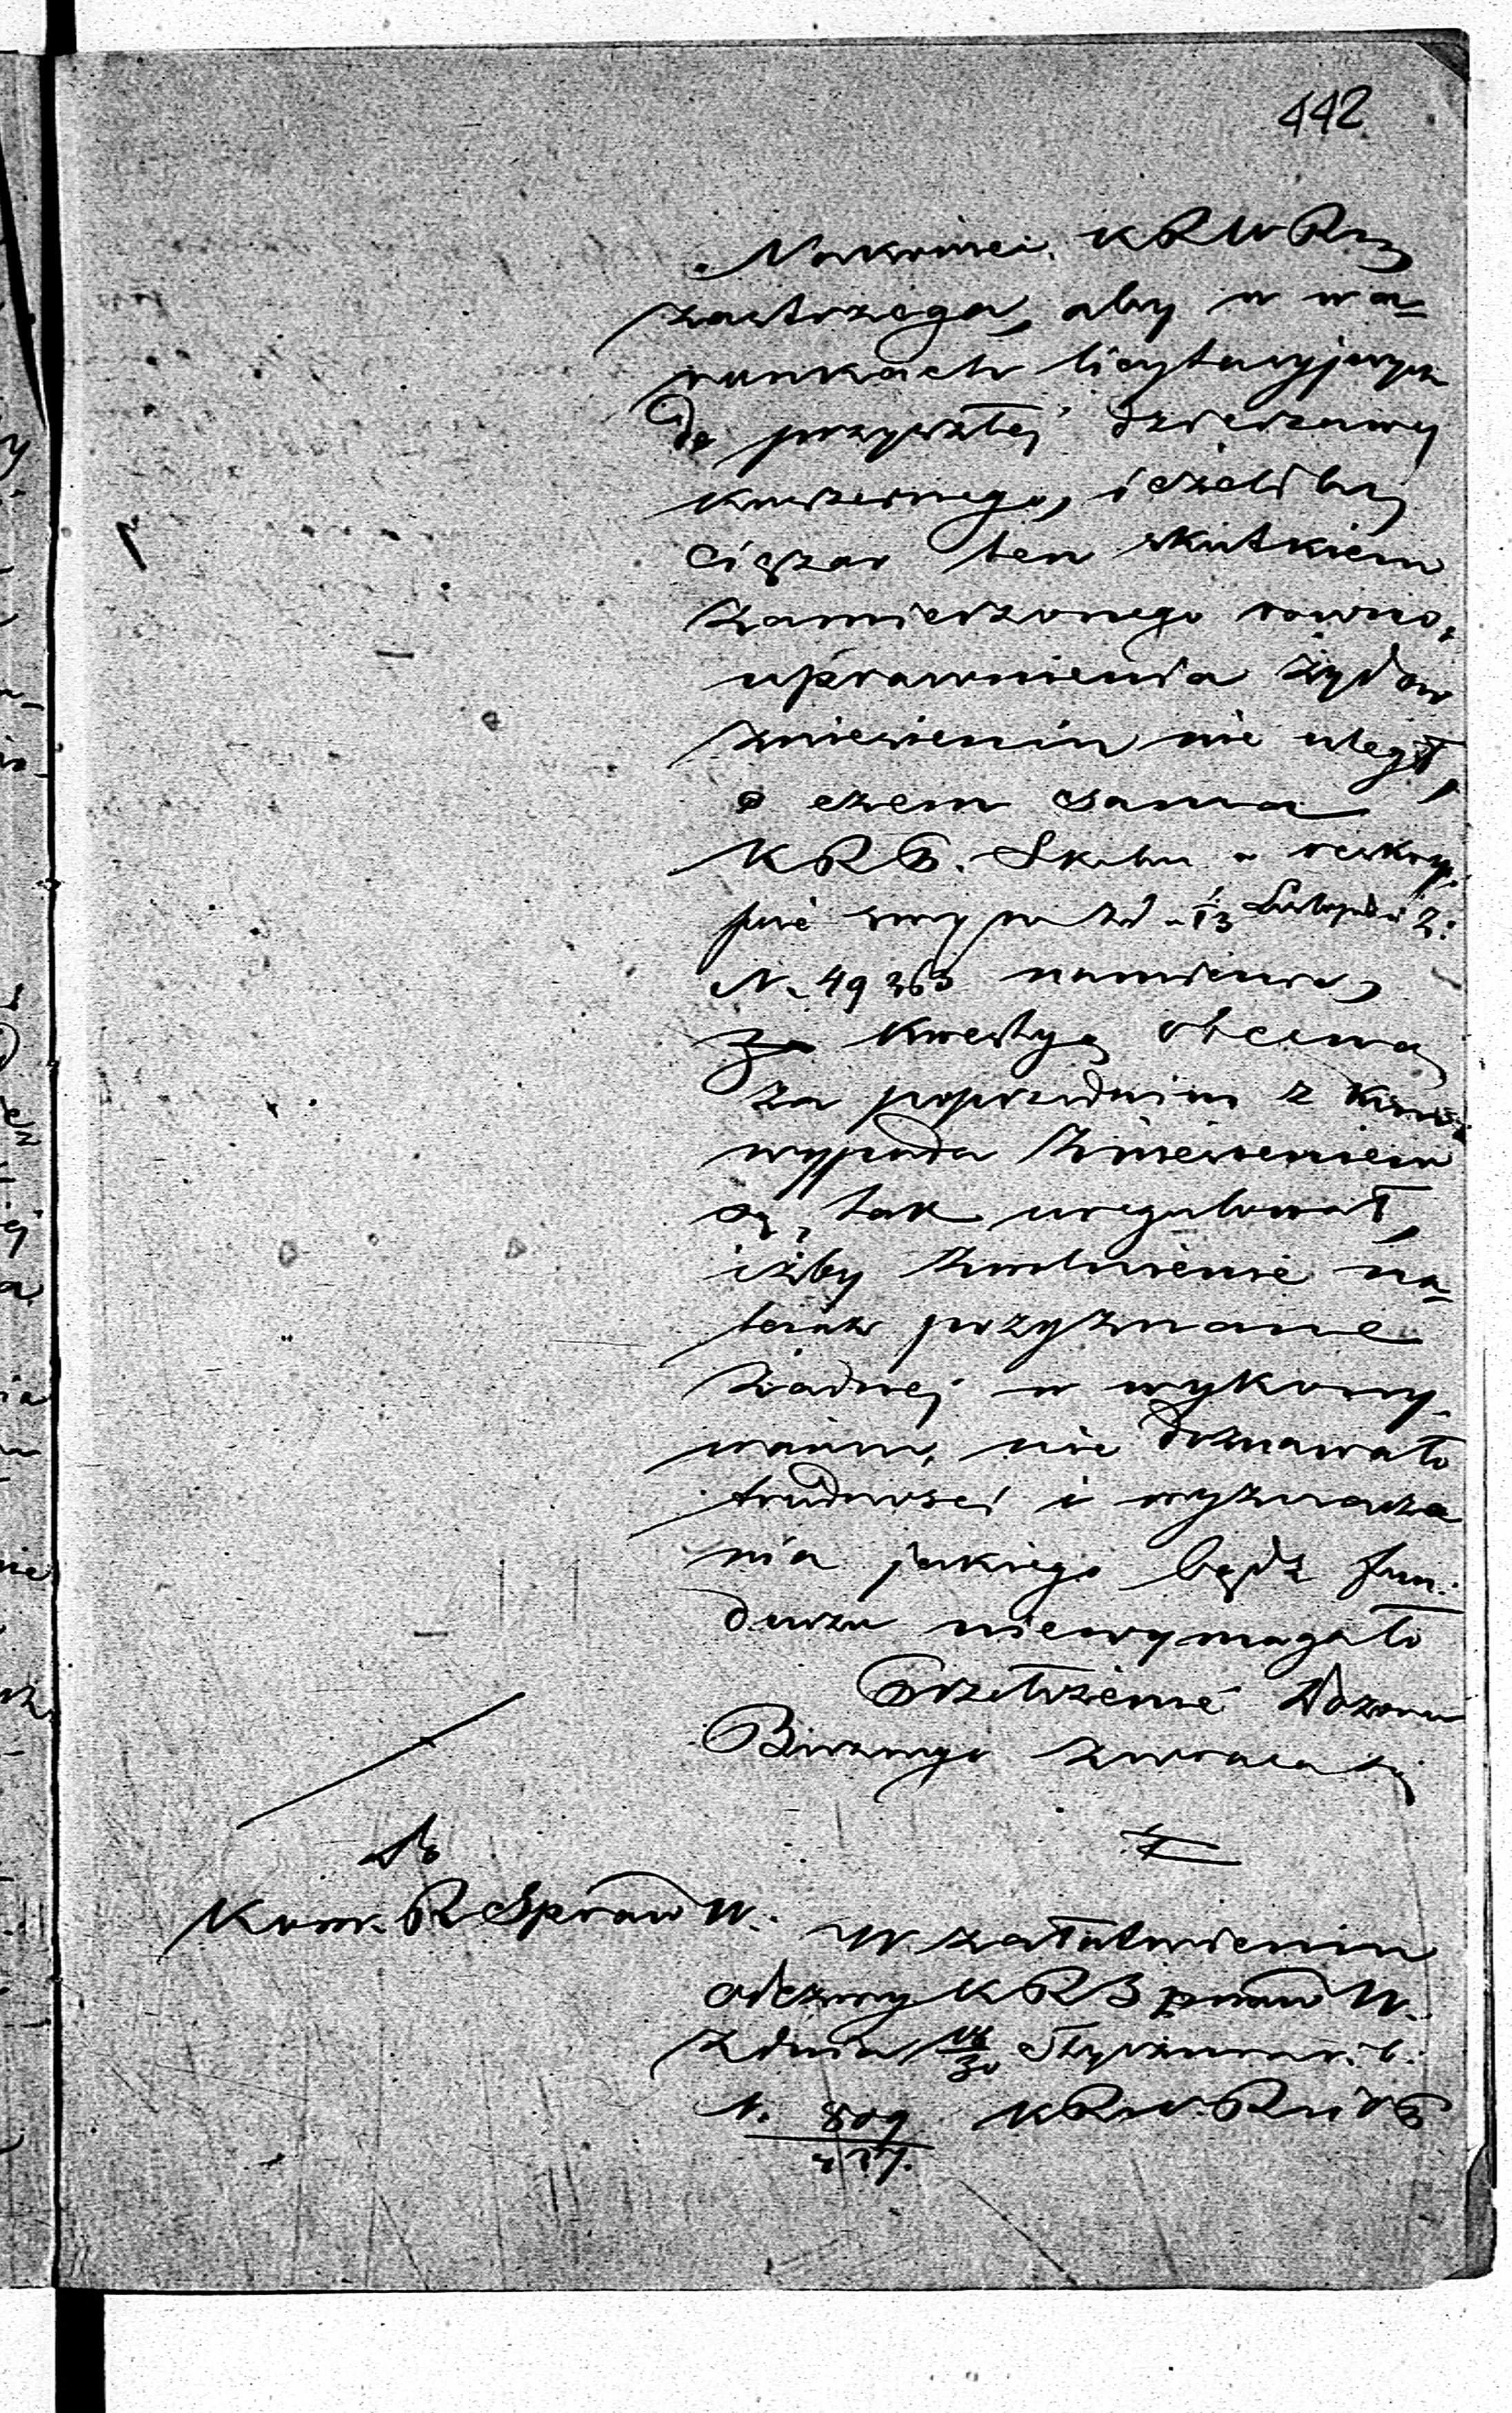 442
Nakoniec KRWRz
zastrzega, aby w wa=
runkach licytacyjnych
do przyszłej dzierżawy
koszernego, jeżeliby
ciężar ten skutkiem
zamierzonego równo=
uprawnienia żydów
zniesieniu nie uległ,
o czem sama
KRS. Skarbu w reskryp
cie swym z d 13 Listopada
N. 49363 namienia,
kwestyą obecną
za poprzednim z
wypada zniesieniem
tak uregulował,
iżby zwolnienie na=
teraz przyznane
żadnej w wykony=
waniu, nie doznawało
trudności i wyznacza
nia jakiego bądź fun=
duszu niewymagało
Przełożenie Dozoru
Bożnego zwraca się
Do
Kom. R Spraw W.
W załatwieniu
odezwy KRSpraw W.
z dnia 18/30 Stycznia r. b.
N. 809